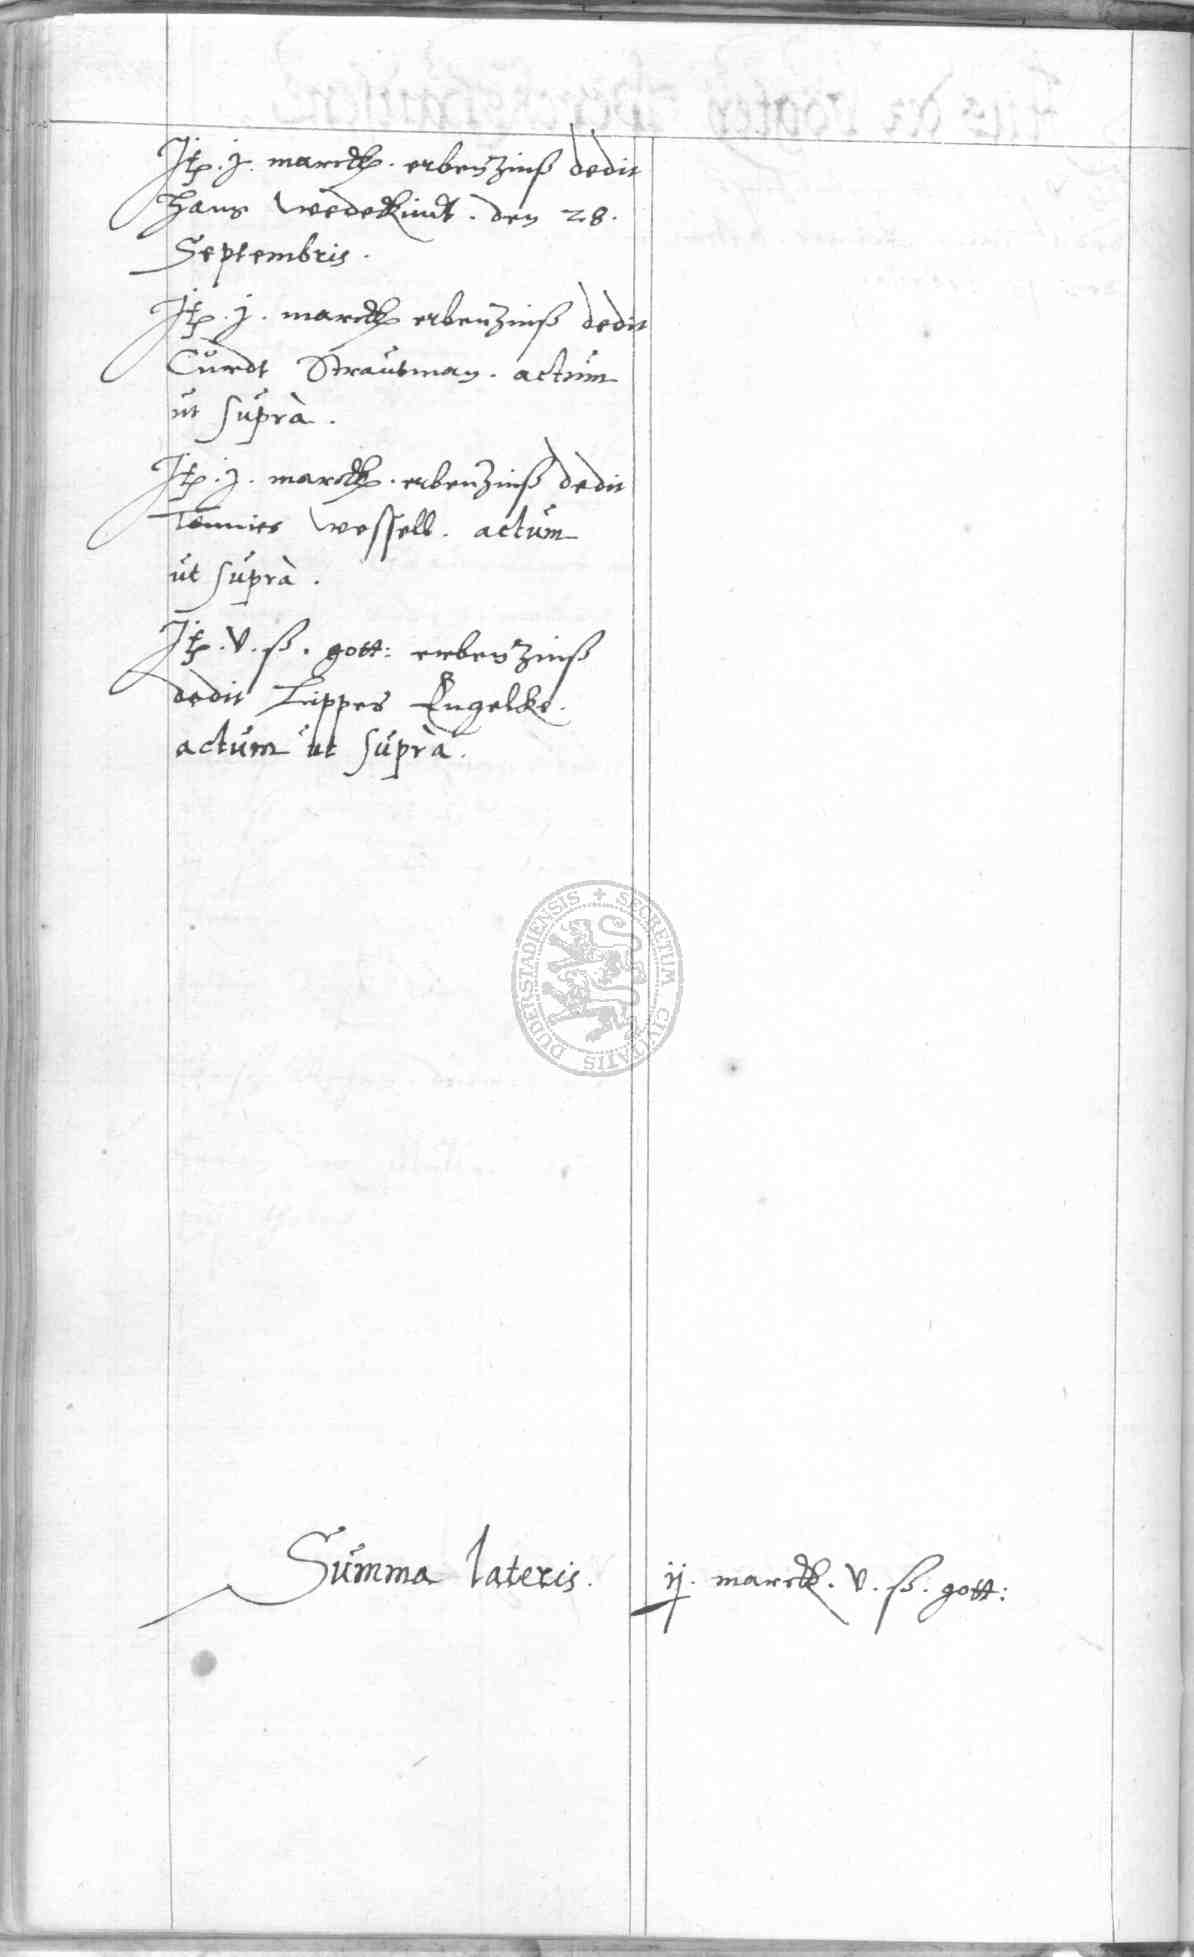 Jt. j. marck. erbenzinß dedit
Hans Wedekindt. den 28.
Septembris.
Jt. j. marck erbenzinß dedit
Cůrdt Straůtman. actům
ůt sůprà.
Jt. j. marck. erbenzinß dedit
Tönnies Wessell. actům
ůt sůprà.
Jt. v. ß. gott: erbenzinß
dedit Lippes Engelke.
actům ůt sůprà.
SECRETUM CIVITATIS DUDERSTADIENSIS
Sům̃a lateris. ij. marck. v. ß. gott: